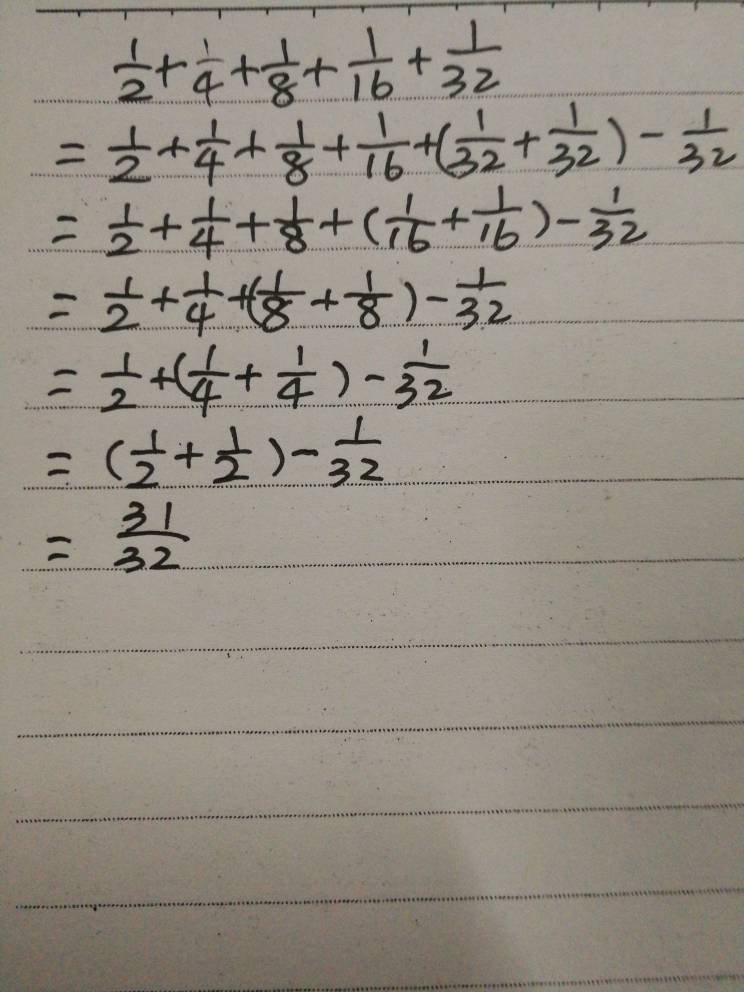 1/2 + 1/4 + 1/8 + 1/16 + 1/32
= 1/2 + 1/4 + 1/8 + 1/16 + (1/32 + 1/32) - 1/32
= 1/2 + 1/4 + 1/8 + (1/16 + 1/16) - 1/32
= 1/2 + 1/4 + (1/8 + 1/8) - 1/32
= 1/2 + (1/4 + 1/4) - 1/32
= (1/2 + 1/2) - 1/32
= 31/32